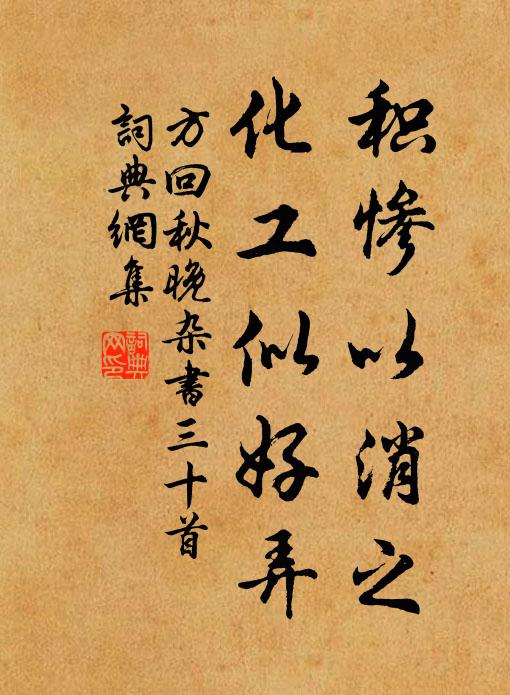 积惨以消之
化工似好弄
方回秋晚杂书三十首
詞典網集
詞典
网印